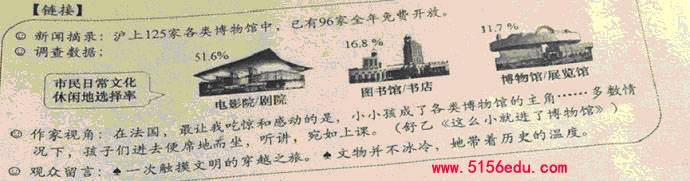 【链接】
☺ 新闻摘录：沪上125家各类博物馆中，已有96家全年免费开放。
☺ 调查数据：
51.6%
16.8 %
11.7 %
市民日常文化
休闲地选择率
电影院/剧院
图书馆/书店
博物馆/展览馆
☺ 作家视角：在法国，最让我吃惊和感动的是，小小孩成了各类博物馆的主角……多数情
况下，孩子们进去便席地而坐，听讲，宛如上课。（舒乙《这么小就进了博物馆》）
☺ 观众留言：♠一次触摸文明的穿越之旅。♠文物并不冰冷，她带着历史的温度。
www.5156edu.com